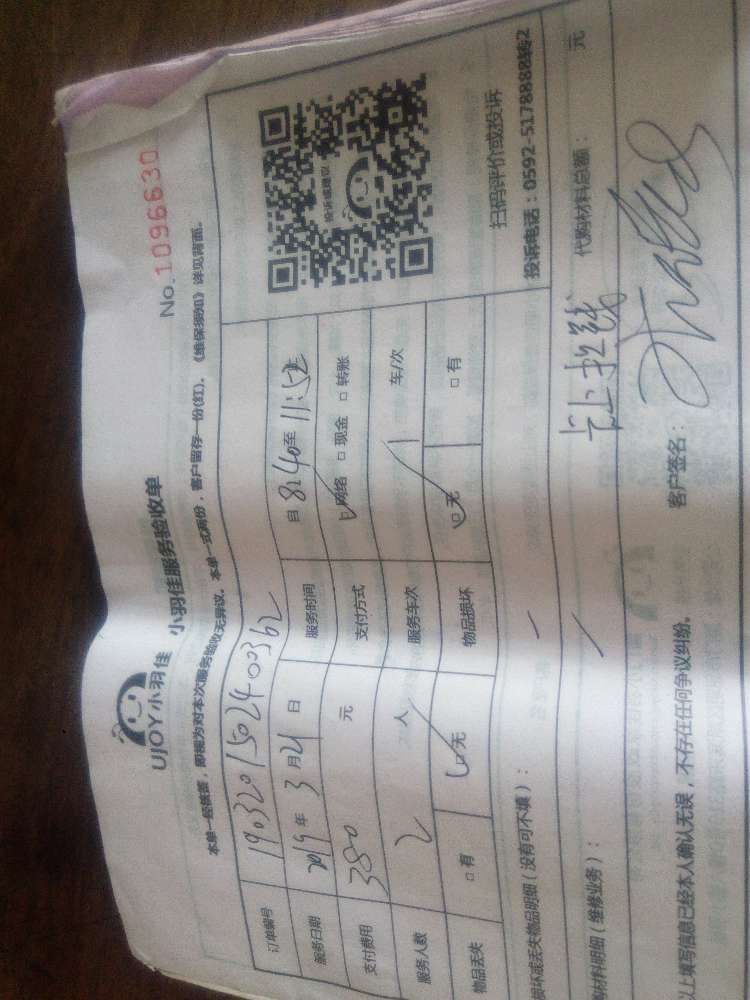 UJOY小羽佳 小羽佳服务验收单
No.1096630
本单一经核签，即视为对本次服务验收无异议。本单一式两份，客户留存一份(红)。《维保须知》详见背面。
订单编号 190320150240 0362
服务日期 2019年3月21日 服务时间 自8:40至11:52
支付费用 380 元 支付方式 网络 □现金 □转账
服务人数 2 人 服务车次 1 车/次
物品丢失 □有 □无 物品损坏 □无 □有
投诉或建议
扫码评价或投诉
投诉电话：0592-5178888转2
损坏或丢失物品明细（没有可不填）：
材料明细（维修业务）： 卡上扣钱 代购材料总额： 元
以上填写信息已经本人确认无误，不存在任何争议纠纷。 客户签名：